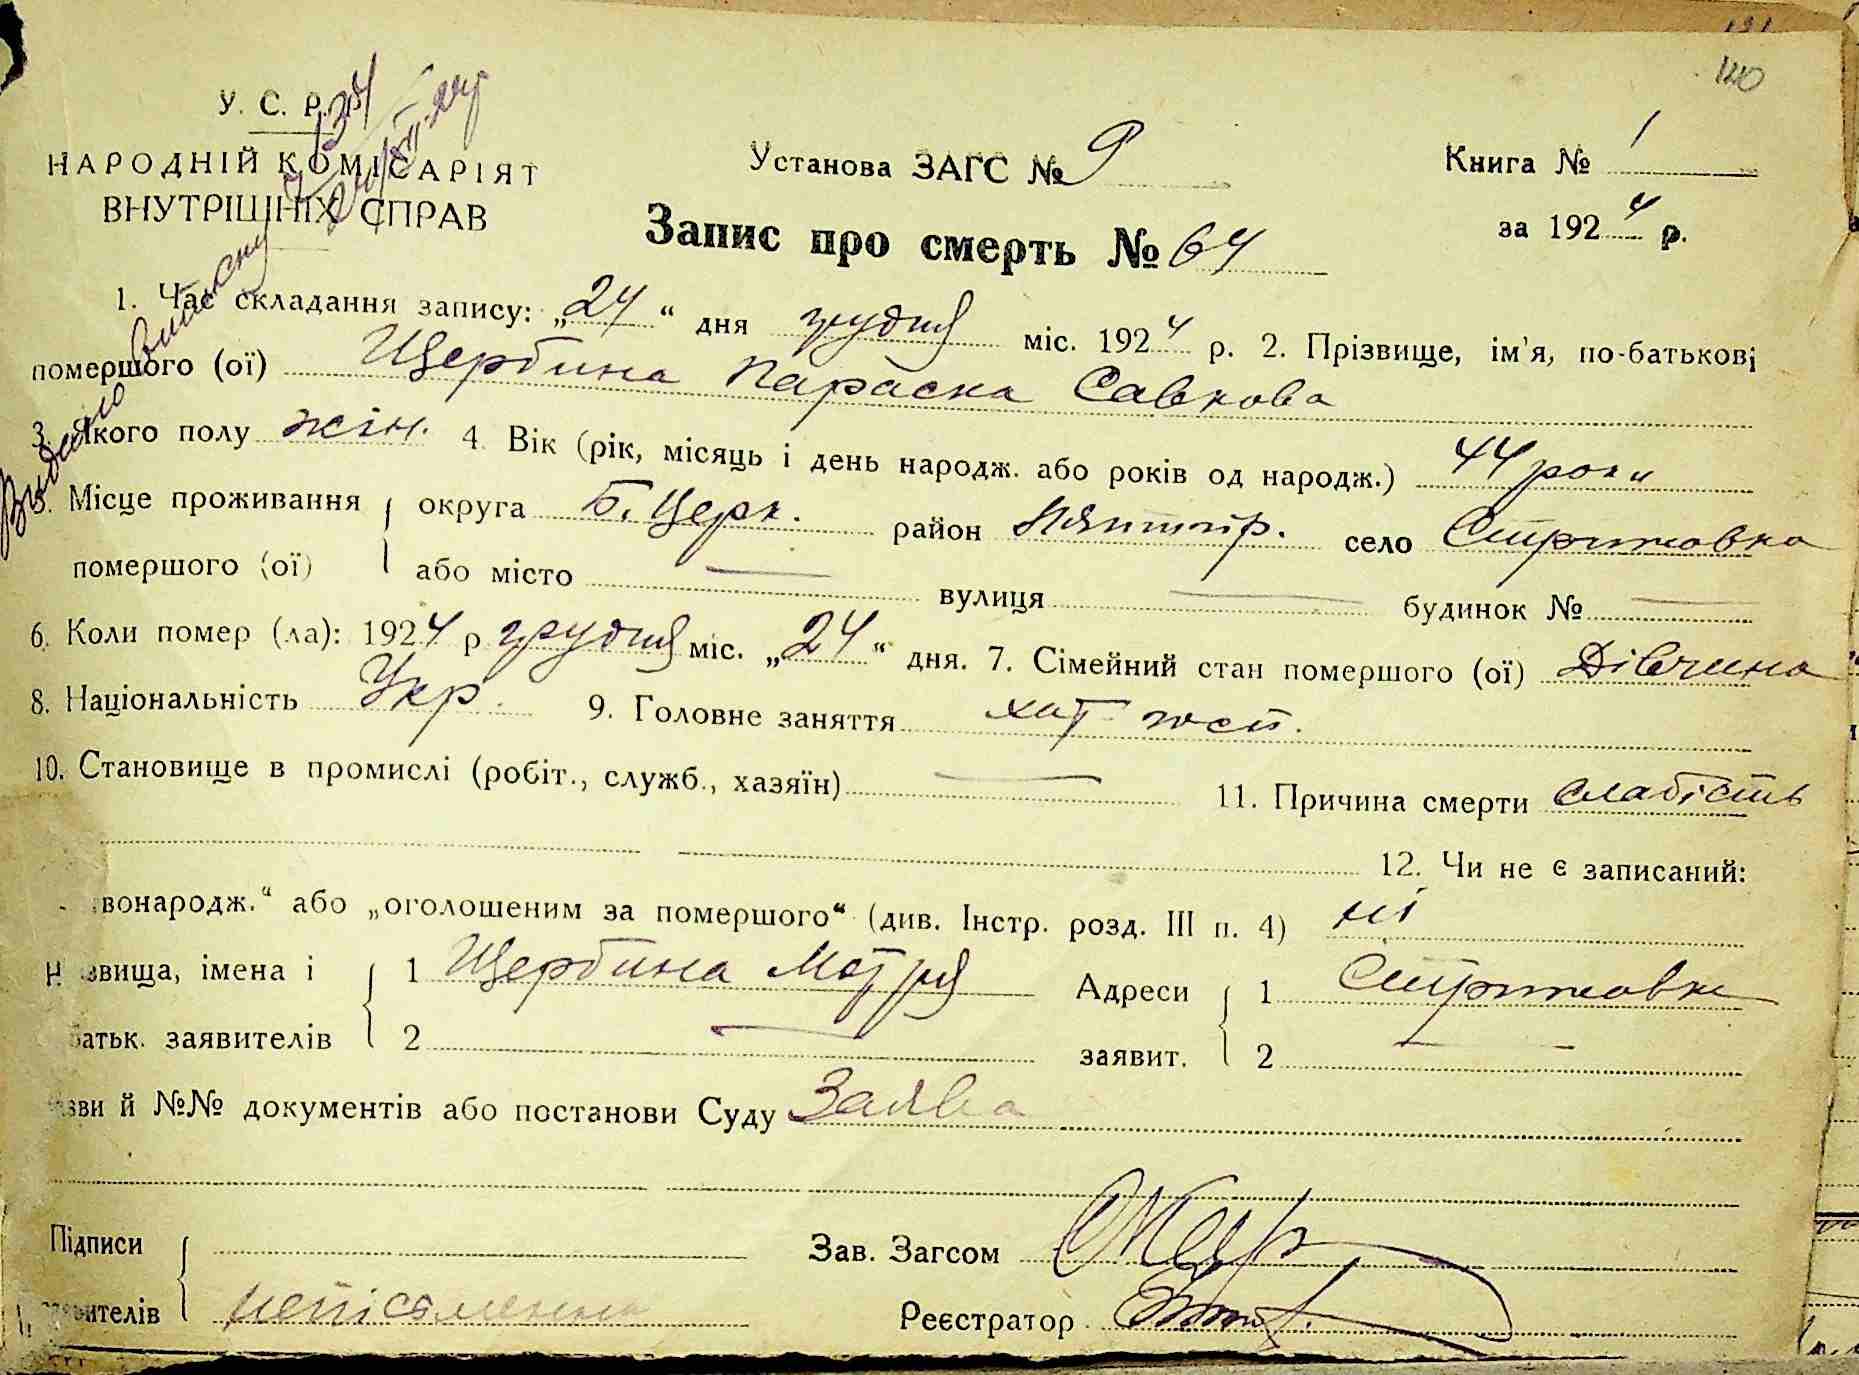 140
У. С. Р.
НАРОДНІЙ КОМІСАРІЯТ
ВНУТРІШНІХ СПРАВ
Установа ЗАГС № 9
Книга № 1
за 1924 р.
Запис про смерть № 64
Видано виписку
1. Час складання запису: „24“ дня грудня міс. 1924 р. 2. Прізвище, ім'я, по-батькові
помершого (ої) Щербина Параска Савкова
3. Якого полу жін. 4. Вік (рік, місяць і день народж. або років од народж.) 44 роки
5. Місце проживання округа Б. Церк. район Пятигір. село Стрижовка
помершого (ої) або місто — вулиця — будинок № —
6. Коли помер (ла): 1924 р грудня міс. „24“ дня. 7. Сімейний стан помершого (ої) Дівчина
8. Національність Укр. 9. Головне заняття хат
10. Становище в промислі (робіт., служб., хазяїн) — 11. Причина смерти слабість
12. Чи не є записаний:
вонародж.“ або „оголошеним за помершого“ (див. Інстр. розд. III п. 4) ні
звища, імена і 1 Щербина Мотря Адреси 1 Стрижовка
батьк. заявителів 2 — заявит. 2 —
зви й №№ документів або постанови Суду Заява
Підписи
вителів непісьменна
Зав. Загсом
Реєстратор